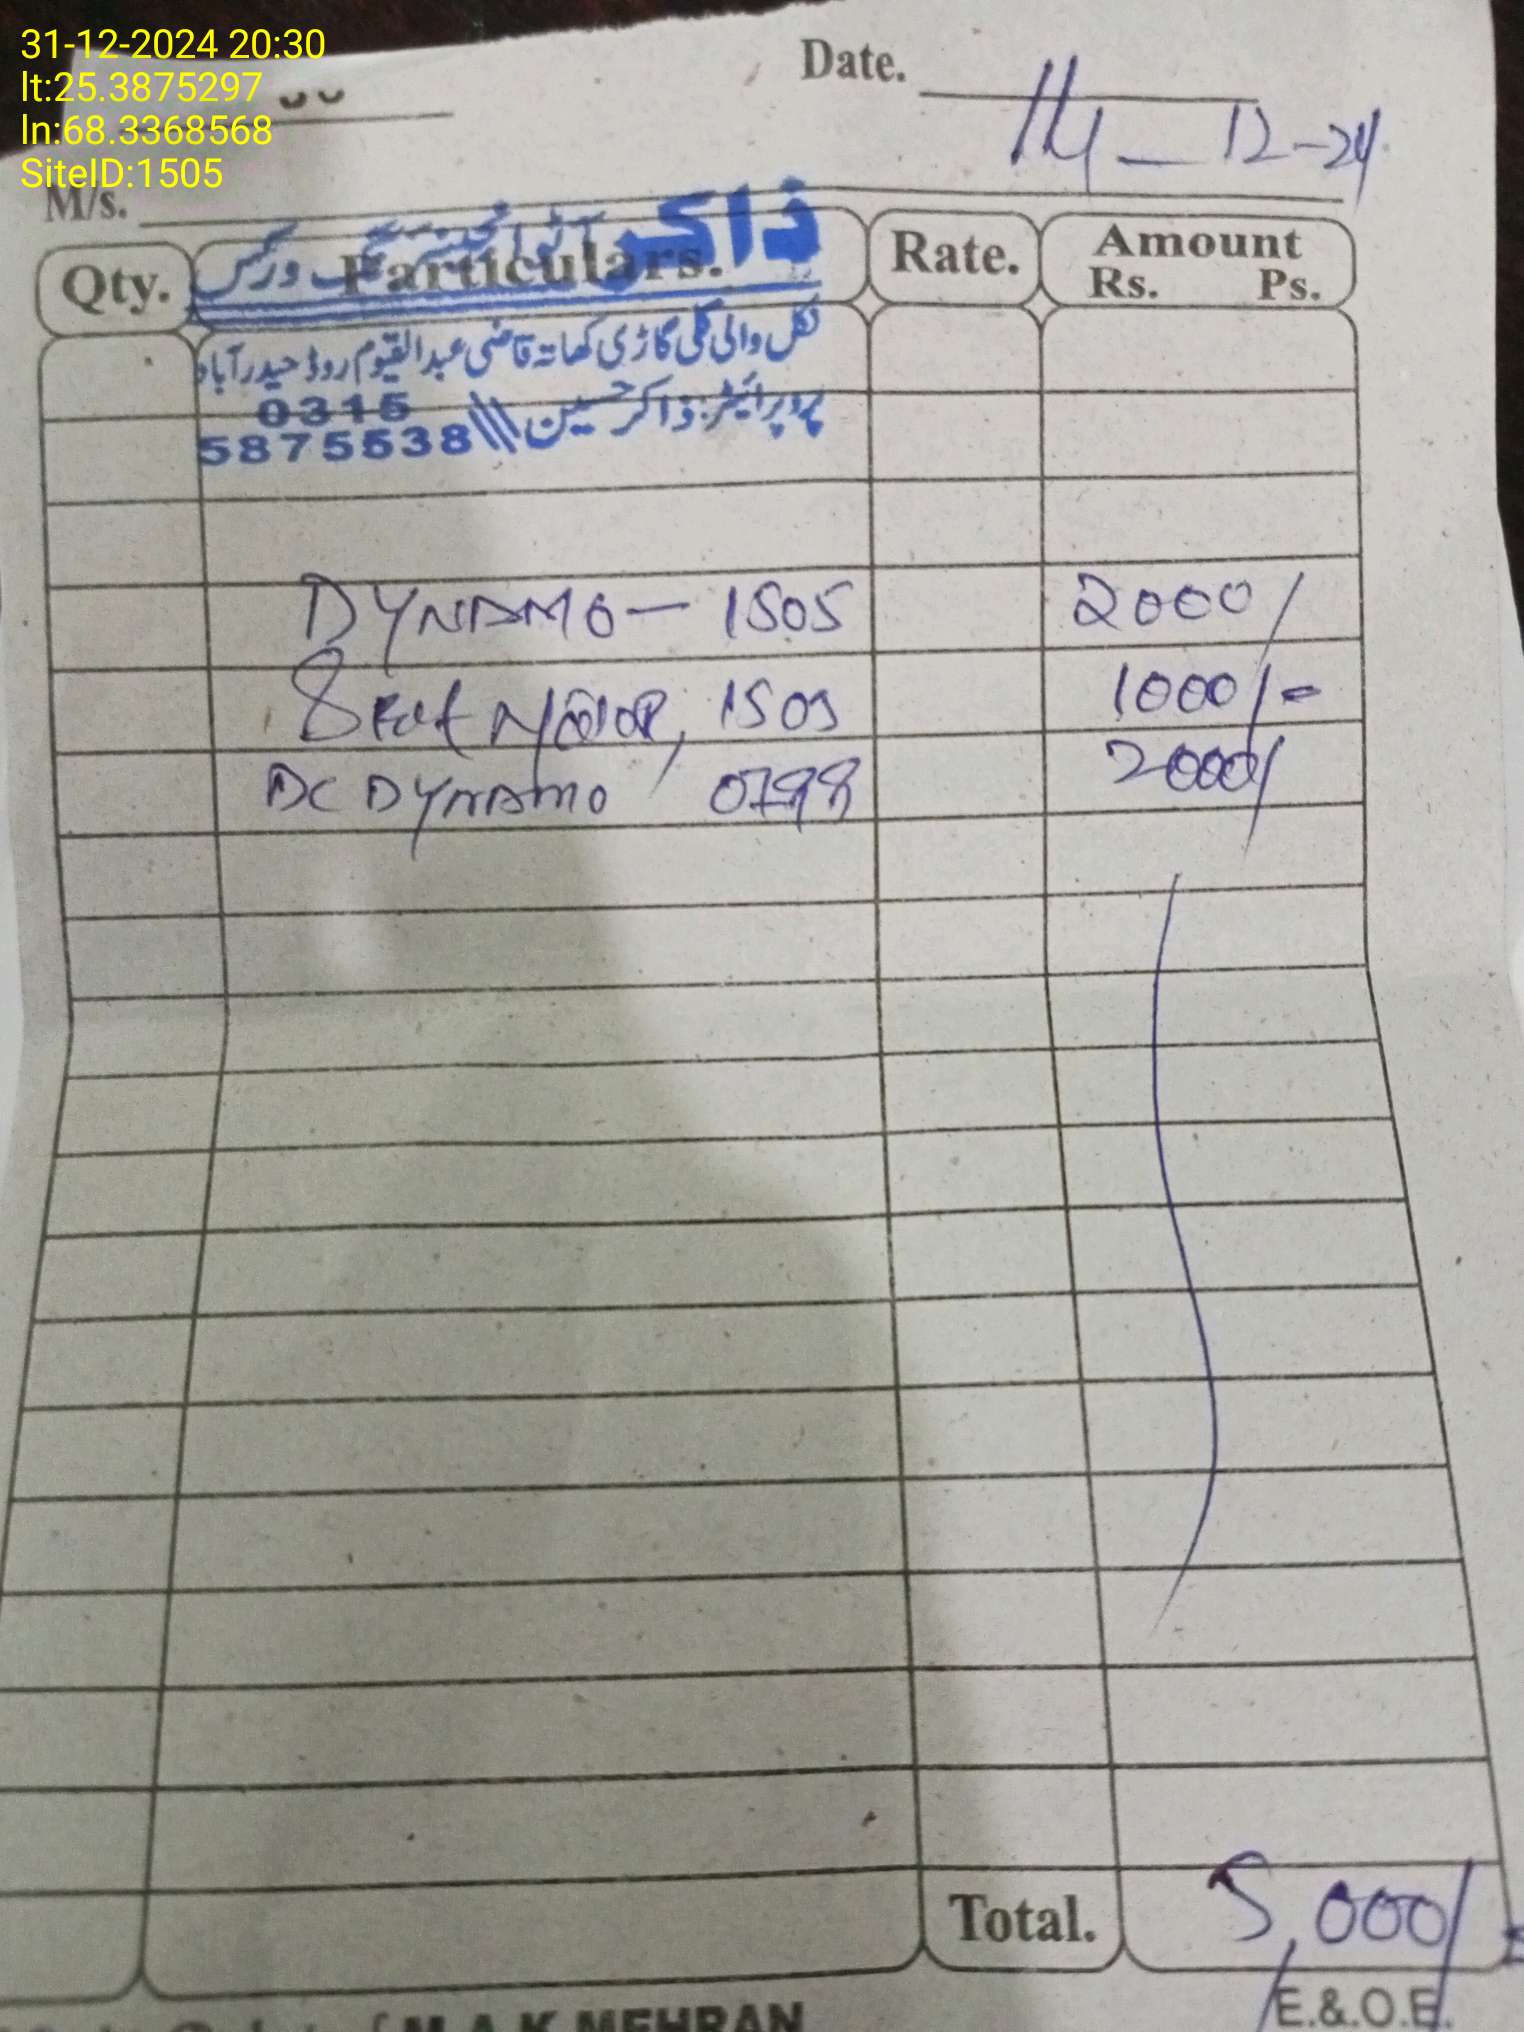 31-12-2024 20:30
lt:25.3875297
ln:68.3368568
SiteID:1505
Date. 14-12-24
M/s.
Qty. Particulars. Rate. Amount
Rs. Ps.
ذاکر آٹو انجینئرنگ ورکس
نکل والی گلی گاڑی کھاتہ قاضی عبدالقیوم روڈ حیدرآباد
پروپرائیٹر: ذاکر حسین
0315
5875538
DYNAMO - 1505 2000/
Seat Motor, 1505 1000/=
DC DYNAMO 0798 2000/
Total. 5,000/=
E.&O.E.
M.A.K MEHRAN